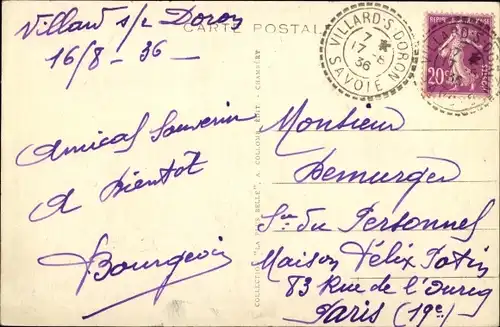 Villard s/ Doron
16/8 - 36 -
CARTE POSTALE
VILLARD-S-DORON
7 *
17 - 8
36
SAVOIE
20
Amical Souvenir
A Bientôt
Bourgeois
COLLECTION "LA PLUS BELLE", A. COLLOMB, EDIT. - CHAMBÉRY
Monsieur
Demurger
du Personnel
Maison Félix Potin
83 Rue de l'Ourcq
Paris (19e)